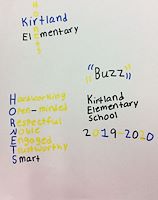 HORNETS
Kirtland
Elementary
"Buzz"
Hardworking
Open-minded
Respectful
Noble
Engaged
Trustworthy
Smart
Kirtland
Elementary
School
2019-2020